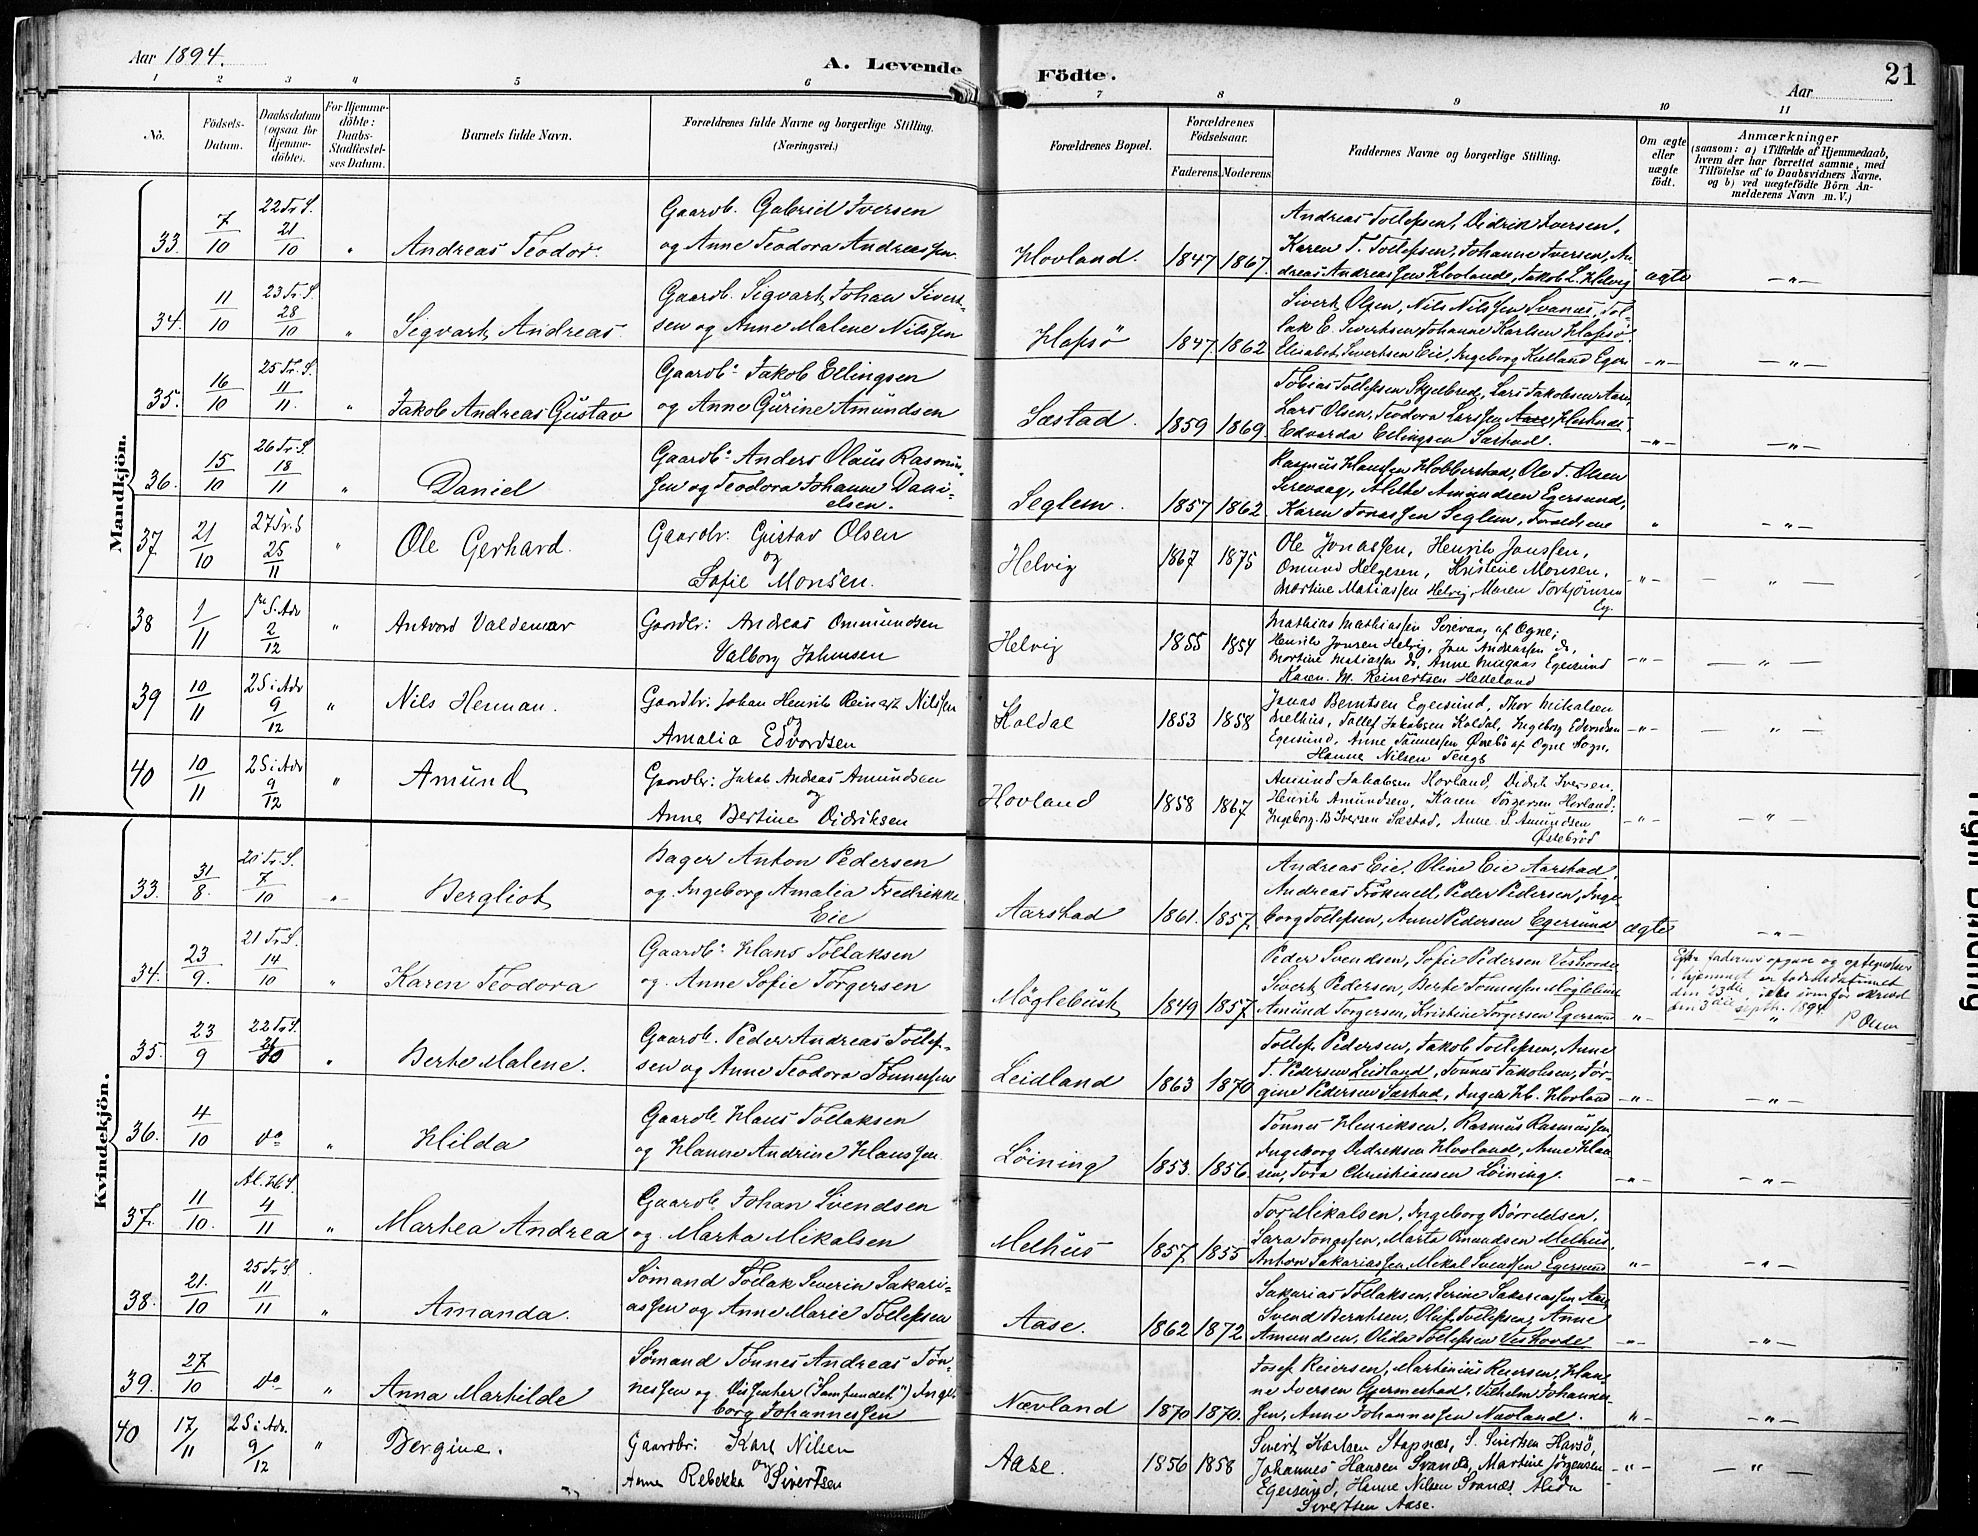 Aar 1894.
A. Levende Födte.
Aar
21
1 2 3 4 5 6 7 8 9 10 11
No.
Födsels-Datum.
Daabsdatum (ogsaa for Hjemmedöbte).
For Hjemmedöbte: Daabs-Stadfæstelses Datum.
Barnets fulde Navn.
Forældrenes fulde Navne og borgerlige Stilling. (Næringsvei.)
Forældrenes Bopæl.
Forældrenes Födselsaar.
Faderens. Moderens.
Faddernes Navne og borgerlige Stilling.
Om ægte eller uægte födt.
Anmærkninger
(saasom: a) i Tilfælde af Hjemmedaab, hvem der har forrettet samme, med Tilföielse af to Daabsvidners Navne, og b) ved uægtefödte Börn Anmelderens Navn m. V.)
Mandkjön.
33. 7/10 22 Tr. S. 21/10 " Andreas Teodor. Gaardb. Gabriel Iversen
og Anne Teodora Andreassen. Hovland. 1847 1867. Andreas Tollefsen, Didrik Iversen,
Karen T. Tollefsen, Johanne Iversen, An-
dreas Andreassen Hovland, Jakob L. Helvig ægte -"-
34. 11/10 23 Tr. S. 28/10 " Segvart Andreas. Gaardb. Segvart Johan Sivert-
sen og Anne Malene Nilssen Hafsö 1847. 1862. Sivert Olsen, Nils Nilssen Svanæs, Tol-
lak E. Sivertsen Johanne Karlsen Hafsø.
Elisabet Sivertsen Eie, Ingeborg Kulland Eger. -"- -"-
35. 16/10 25 Tr. S. 11/11. " Jakob Andreas Gustav Gaardb. Jakob Ellingsen
og Anne Gurine Amundsen Sæstad. 1859 1869. Tobias Tollefsen Skjelbred, Lars Jakobsen Aare,
Lars Olsen, Teodora Larssen Aare, Hestnæs,
Edvarda Ellingsen Sæstad. -"- -"-
36. 15/10 26 Tr. S. 18/11 " Daniel Gaardb. Anders Olaus Rasmus-
sen og Teodora Johanne Dani-
elsen. Seglem. 1857 1862. Rasmus Hansen Hobberstad, Ole T. Olsen
Sirevaag, Alette Amundsen Egersund,
Karen Jonassen Seglem, Forældrene " -"-
37 21/10 27 Tr. S 25/11 " Ole Gerhard. Gaardbr: Gustav Olsen
og
Sofie Monsen. Helvig 1867 1875 Ole Jonassen, Henrik Jonssen,
Omund Helgesen, Kristine Monsen,
Martine Matiassen Helvig, Maren Torbjörnsen
Eg. -"- - " -
38 1/11 1ste S. Adv 2/12 " Antvord Valdemar Gaardbr: Andreas Ommundsen
Valborg Johnsen Helvig 1855 1854 Mathias Mathiassen Sirevaag af Ogne;
Henrik Jonsen Helvig, Jon Andreassen do,
Martine Matiassen do, Anne Egersund
Karen. M. Reinertsen Hetland -"- - " -
39 10/11 2 S i Adv 9/12 " Nils Herman. Gaardbr: Johan Henrik Reinart Nilssen
og
Amalia Edvardsen Koldal 1853 1858 Jonas Berntsen Egersund, Thor Mikalsen
Melhus, Tollef Jakobsen Koldal, Ingeborg Edvardsen
Egersund, Anne Tønnessen Ørebö af Ogne Sogn,
Hanne Nilsen Tengs -"- - " -
40 10/11 2 S i Adv 9/12 " Amund Gaardbr: Jakob Andreas Amundsen
og
Anne Bertine Didriksen Hovland 1858 1867 Amund Jakobsen Hovland, Didrik Iversen,
Henrik Amundsen, Karen Torgersen Hovland.
Ingeborg B Iversen Sæstad, Anne S Amundsen
Østebröd -"- - " -
Kvindekjön.
33. 31/8. 20 Tr. S. 7/10 -"- Bergliot Bager Anton Pedersen
og Ingeborg Amalia Fredrikke
Eie Aarstad 1861. 1857. Andreas Eie, Oline Eie Aarstad,
Andreas Frökmell, Peder Pedersen, Inge-
borg Tollefsen, Anne Pedersen Egersund ægte -"-
34. 23/9. 21 Tr. S. 14/10 " Karen Teodora Gaardb. Hans Tollaksen
og Anne Sofie Torgersen Möglebust 1849 1857. Peder Svendsen, Sofie Pedersen Veshovde
Sivert Pedersen, Berte Tonnessen Möglebust
Amund Torgersen, Kristine Torgersen Egersund " Efter faderens opgave og optegnelser
i hjemmet er fødselsdatumet
den 23de, ikke som før skrevet
den 3die septb. 1894 P. Olsen
"
35. 23/9 22 Tr. S. 21/10 " Berte Malene. Gaardb. Peder Andreas Tollef-
sen og Anne Teodora Tönnessen Leidland 1863 1870 Tollef Pedersen, Jakob Tollefsen, Anne
T. Pedersen Leidland, Tönnes Jakobsen, Tor-
gine Pedersen Sæstad, Inger Kb. Hovland -"- -"-
36. 4/10 do " Hilda Gaardb. Hans Tollaksen
og Hanne Andrine Hanssen. Löining 1853. 1856. Tönnes Henriksen, Rasmus Rasmussen,
Ingeborg Didriksen Hovland, Anne Han-
sen, Tora Christiansen Löining. -"- -"-
37. 11/10. Al. H. S. 4/11 " Martea Andrea Gaardb. Johan Svendsen
og Marta Mikalsen Melhus 1857. 1855 Tor Mikalsen, Ingeborg Börreldsen,
Sara Jonassen, Marta Omundsen Melhus,
Anton Sakariassen, Mikal Svendsen Egersund -"- -"-
38. 21./10 25 Tr. S. 11/11 " Amanda. Sömand Tollak Severin Sakari-
assen og Anne Marie Tollefsen Aase. 1862 1872. Sakarias Tollaksen, Serine Sakariassen Aase,
Svend Berntsen, Oluf Tollefsen, Anne
Amundsen, Olida Tollefsen Veshovde -"- -"-
39. 27/10 do " Anna Martilde Sömand Tönnes Andreas Tön-
nessen og Dissenter ("Samfundet") Inge-
borg Johannessen Nævland 1870 1870. Josef Reiersen, Martinius Reiersen, Han-
ne Iversen Gjermestad, Vilhelm Johannes-
sen, Anne Johannessen Nævland. " -"-
40 17/11 2 S i Adv. 9/12 " Bergine. Gaardbr: Karl Nilsen
og
Anne Rebekka Sivertsen Aase. 1856 1858 Sivert Karlsen Stapnæs, S. Sivertsen Hafsö,
Johannes Hansen Svanæs, Martine Jörgensen
Egersund, Hanne Nilsen Svanæs, Alida
Sivertsen Aase. -"- - " -